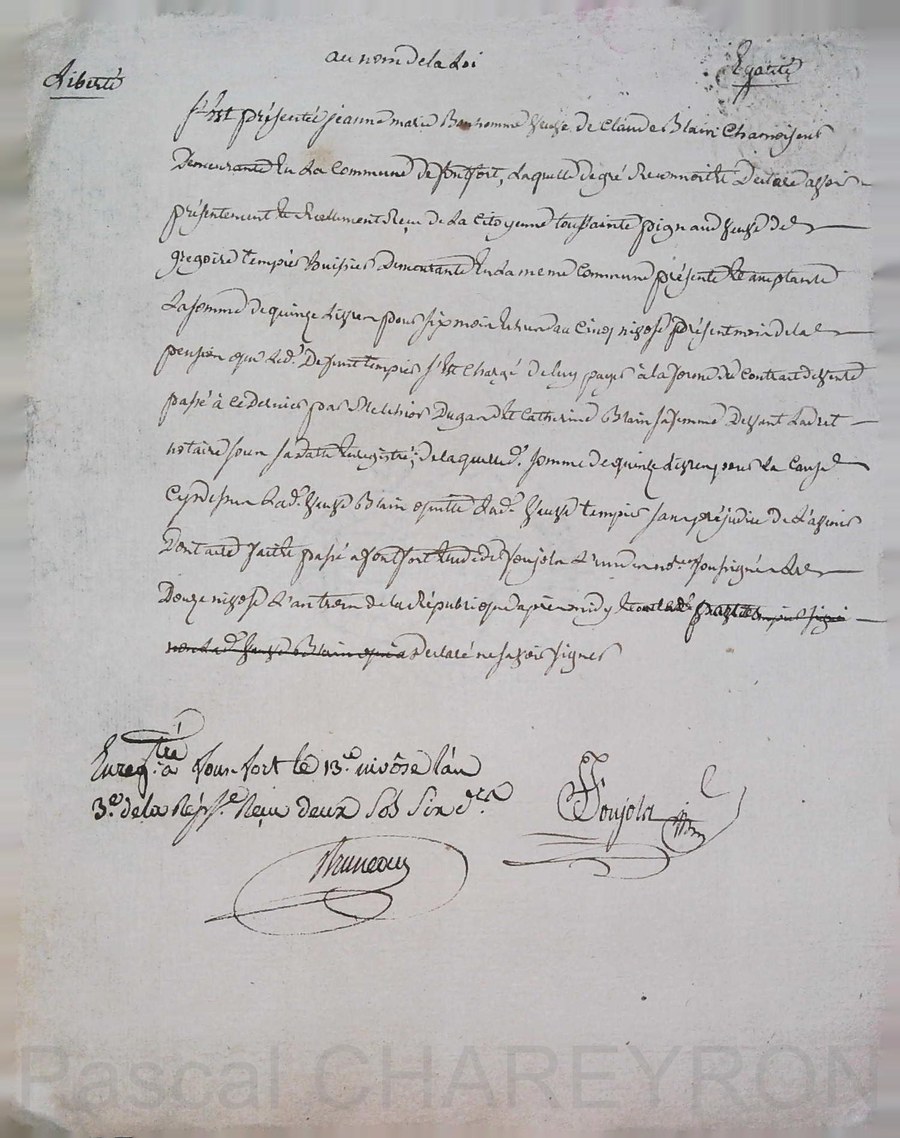 au nom de la Loi
Liberté
Egalité
S'est présentée jeanne marie Bonhomme veuve de Claude Blain Chamoiseur
Demeurante En La Commune de fontfort, Laquelle de gré Reconnoit Et Declare avoir
présentement Et Reellement Reçu de La Citoyenne toussainte pignaud veuve de
gregoire tempier Demeurante En La meme Commune présente Et acceptante
La somme de quinze Livres pour six mois Echus au Cinq nivose présent mois de la
pension que Led.t Defunt tempier s'est Chargé de luy payer à la forme du Contrat de vente
passé à ce Dernier par Melchior Dugand Et Catherine Blain sa femme Devant Ladret
notaire sous sa datte Enregistré; de laquelle d.e somme de quinze Livres pour La Cause
Cy dessus Lad.e veuve Blain quitte Lad.e veuve tempier sans préjudice de L'avenir
Dont acte fait Et passé a fontfort Etude de Soujola L'un des no.res soussigné Le
Douze nivose L'an trois de la République après midy
non Lad.e veuve Blain qui a Declaré ne savoir signer
Enreg.tré à fonfort le 13.e nivôse l'an
3.e de la Rép.e Reçu deux sols six d.ers
Soujola
Bruneau
Pascal CHAREYRON